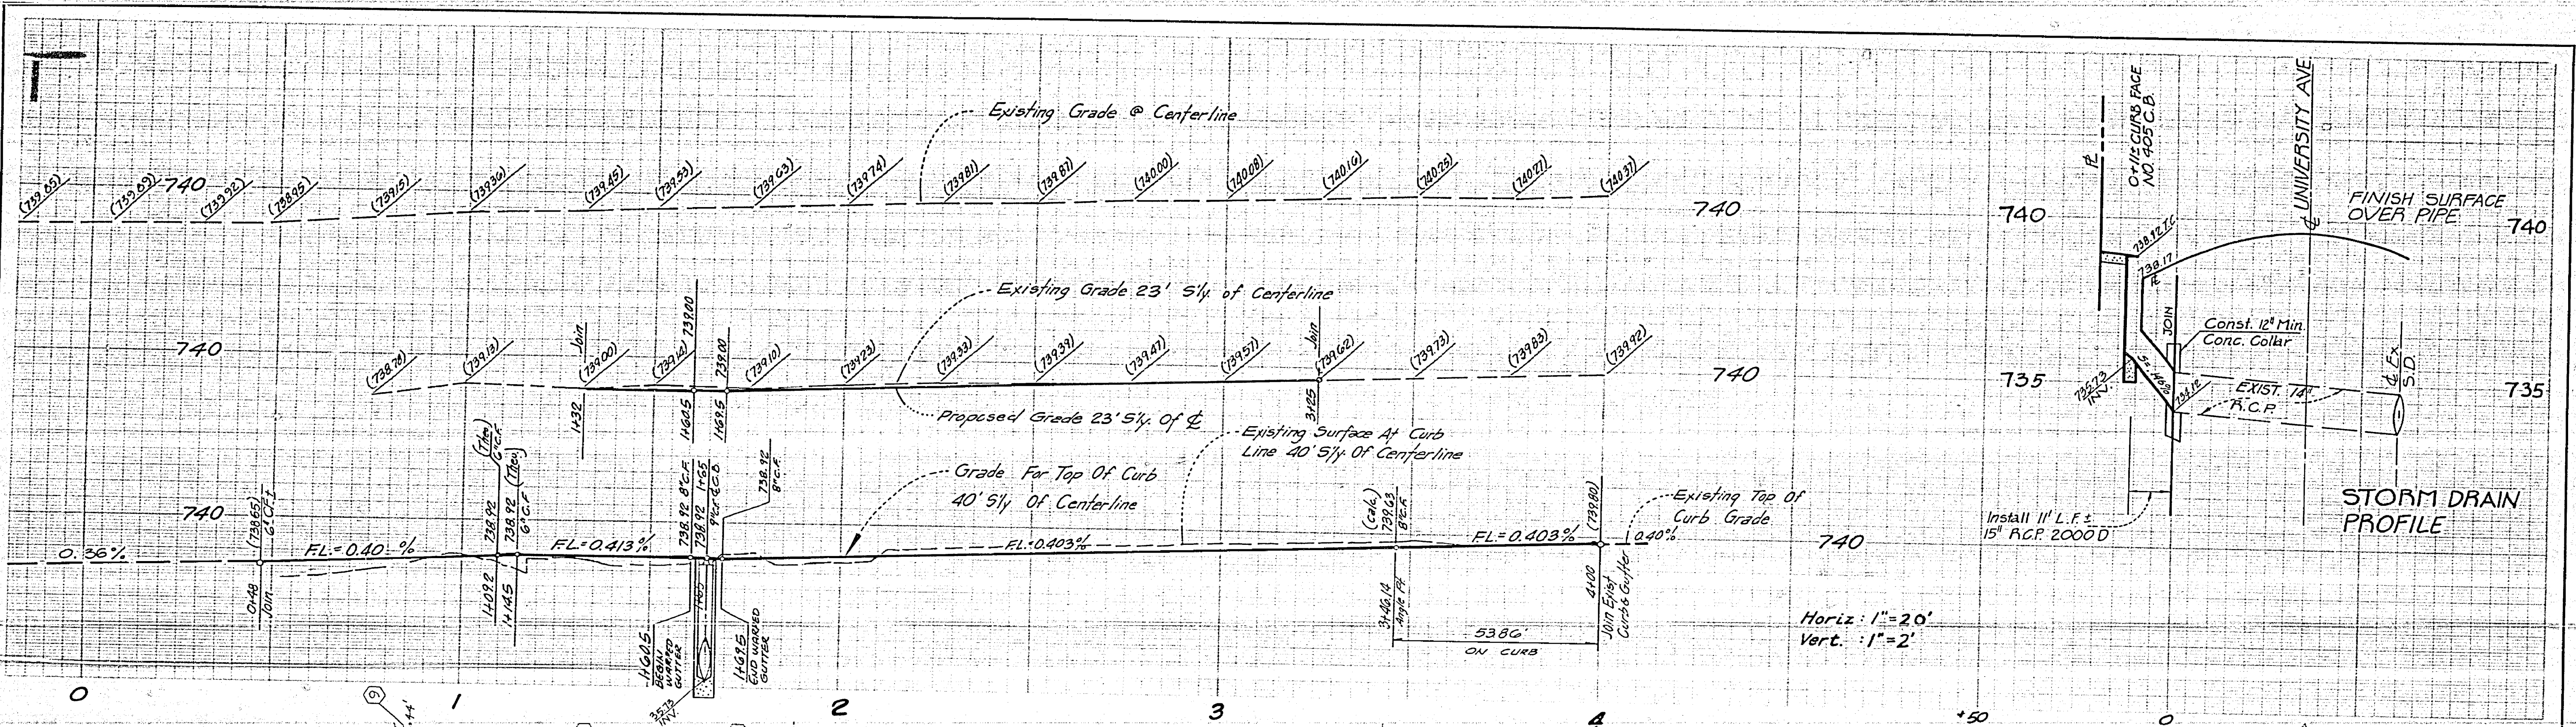 Existing Grade @ Centerline
(739.85)
(739.89)
740
(739.92)
(738.95)
(739.15)
(739.36)
(739.45)
(739.53)
(739.63)
(739.74)
(739.81)
(739.87)
(740.00)
(740.08)
(740.16)
(740.25)
(740.27)
(740.37)
740
Existing Grade 23' S'ly. of Centerline
740
(738.78)
(739.13)
Join
(739.00)
(739.14)
739.00
739.00
(739.10)
(739.23)
(739.33)
(739.39)
(739.47)
(739.57)
Join
(739.62)
(739.73)
(739.83)
(739.92)
740
1+32
1+60.5
1+69.5
3+25
Proposed Grade 23' S'ly. Of ℄
Existing Surface At Curb
Line 40' S'ly Of Centerline
Grade For Top Of Curb
40' S'ly Of Centerline
Existing Top Of
Curb Grade
740
(738.65)
6" CF±
738.92
(Theo)
6" C.F.
738.92 (Theo.)
6" C.F.
738.92 8" C.F.
738.92 1+65
9" C.F. ℄ C.B.
738.92
8" C.F.
(Calc.)
739.63
8" C.F.
(739.80)
0.36%
FL=0.40-%
FL=0.413%
FL=0.403%
FL=0.403%
0.40%
740
0+48
Join
1+09.2
1+14.5
1+60.5
BEGIN
WARPED
GUTTER
1+65
1+69.5
END WARPED
GUTTER
35.73
INV.
3+46.14
Angle Pt.
53.86'
ON CURB
4+00
Join Exist
Curb & Gutter
Horiz : 1"=20'
Vert. : 1"=2'
0
1
2
3
4
9
.44'
℄ UNIVERSITY AVE
0+11± CURB FACE
NO. 405 C.B.
FINISH SURFACE
OVER PIPE
740
740
738.92 T.C.
738.17
JOIN
Const. 12" Min.
Conc. Collar
735
735
735.73
INV.
734.12
EXIST. 74"
R.C.P.
℄ Ex.
S.D.
Install 11' L.F.±
15" R.C.P. 2000 D
STORM DRAIN
PROFILE
+50
0